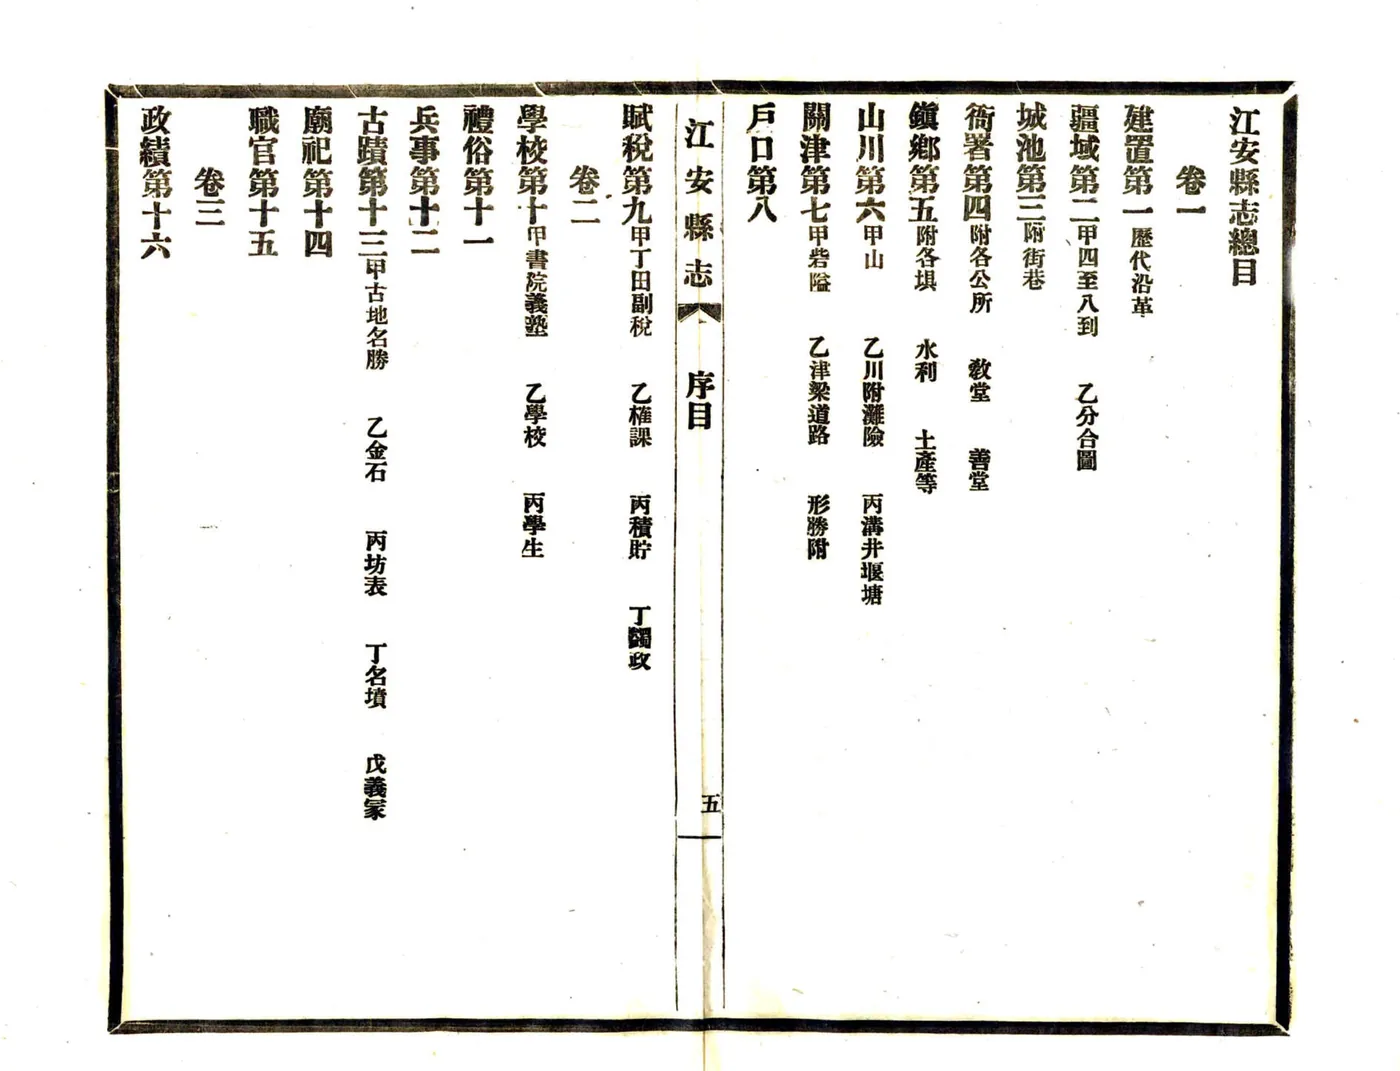 江安縣志總目
卷一
建置第一 歷代沿革
疆域第二 甲四至八到 乙分合圖
城池第三 附街巷
衙署第四 附各公所 敎堂 善堂
鎭鄕第五 附各塡 水利 土產等
山川第六 甲山 乙川附灘險 丙溝井堰塘
關津第七 甲砦隘 乙津梁道路 形勝附
戶口第八
江安縣志 序目 五
賦稅第九 甲丁田副稅 乙榷課 丙積貯 丁蠲政
卷二
學校第十 甲書院義塾 乙學校 丙學生
禮俗第十一
兵事第十二
古蹟第十三 甲古地名勝 乙金石 丙坊表 丁名墳 戊義冢
廟祀第十四
職官第十五
卷三
政績第十六